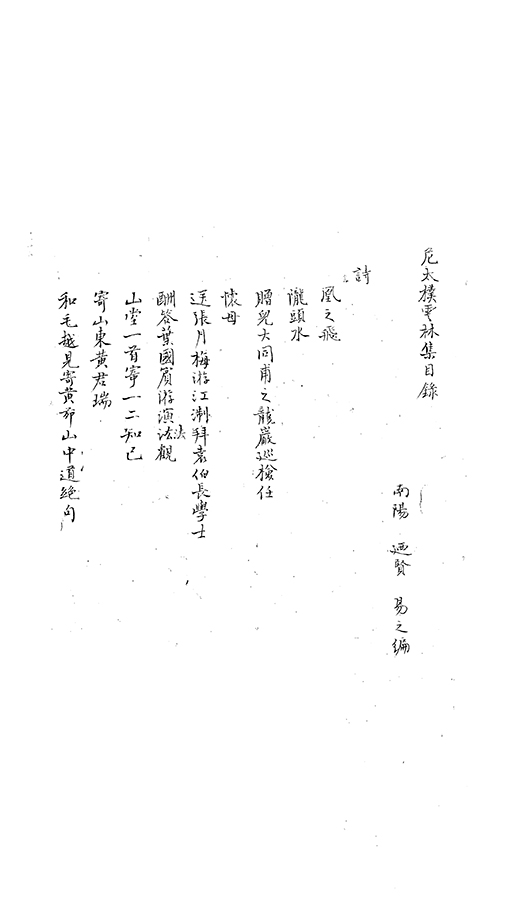 危太樸雲林集目錄
南陽 迺賢 易之編
詩
鳳之飛
隴頭水
贈兒大同甫之龍巖巡檢任
懷母
送張月梅游江淛拜袁伯長學士
酬答葉國賓游演法觀
法
山堂一首寄一二知己
寄山東黃君瑞
和毛越見寄黃茆山中道絕句